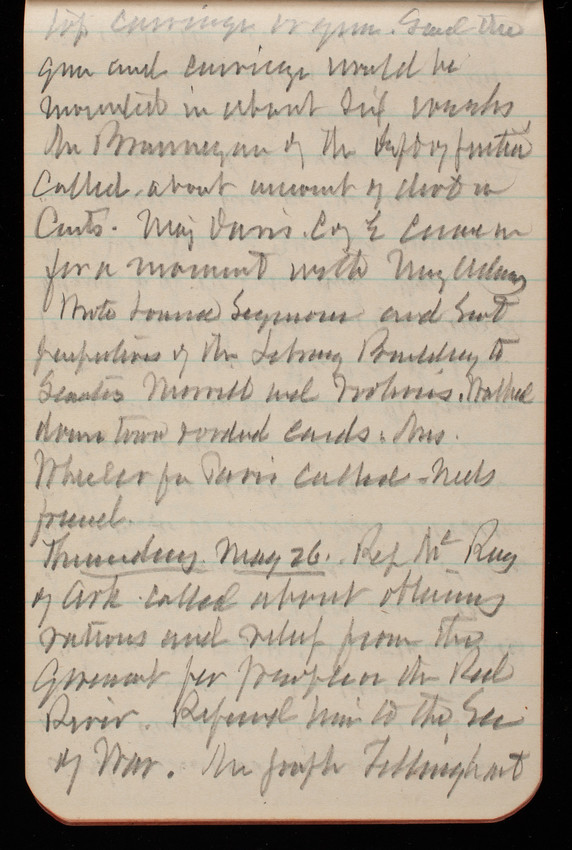 top carriage or gun. Said the
gun and carriage would be
mounted in about six weeks.
Mr Brannegan of the Dept of Justice
called about amount of
Cents. Maj Davis. Eng came in
for a moment with Maj Adams
Wrote Truman Seymour and sent
perspectives of the Library Building to
Senators Morrill and Voorhees. Walked
down town cards. Mrs.
Wheeler for Davis called - needs
friend.
Thursday May 26. Rep McRae
of Ark called about obtaining
rations and relief from the
Government for people on the Red
River. Referred him to the Sec
of War. Mr Joseph Tillinghast